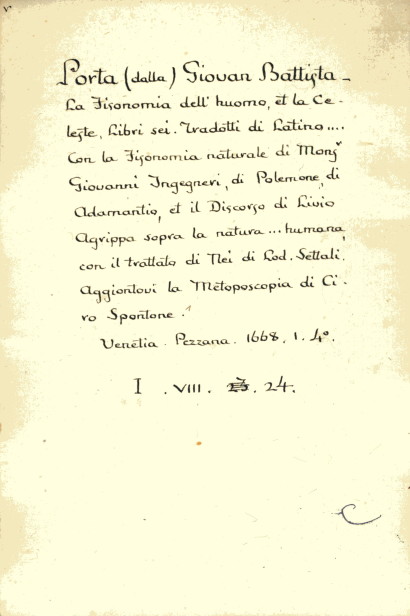 Porta (dalla) Giovan Battista -
La Fisonomia dell' huomo, et la Ce-
leste, Libri sei. Tradotti di Latino....
Con la Fisonomia naturale di Monsr
Giovanni Ingegneri, di Polemone, di
Adamantio, et il Discorso di Livio
Agrippa sopra la natura ... humana,
con il trattato di Nei di Lod. Settali.
Aggiontovi la Metoposcopia di Ci-
ro Spontone.
Venetia. Pezzana. 1668. 1. 4º.
I . VIII. 24.